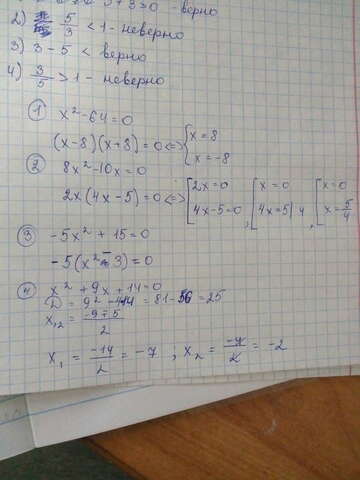 +3>0 - верно
2) 5/3 < 1 - неверно
3) 3 - 5 < верно
4) 3/5 > 1 - неверно
① x² - 64 = 0
(x - 8)(x + 8) = 0 <=> { x = 8
x = -8
② 8x² - 10x = 0
2x(4x - 5) = 0 <=> [ 2x = 0 4x - 5 = 0 , [ x = 0 4x = 5 | 4 , [ x = 0 x = 5/4
③ -5x² + 15 = 0
-5(x² - 3) = 0
④ x² + 9x + 14 = 0
D = 9² - 4·14 = 81 - 56 = 25
x₁,₂ = (-9 ∓ 5)/2
x₁ = -14/2 = -7 ; x₂ = -4/2 = -2